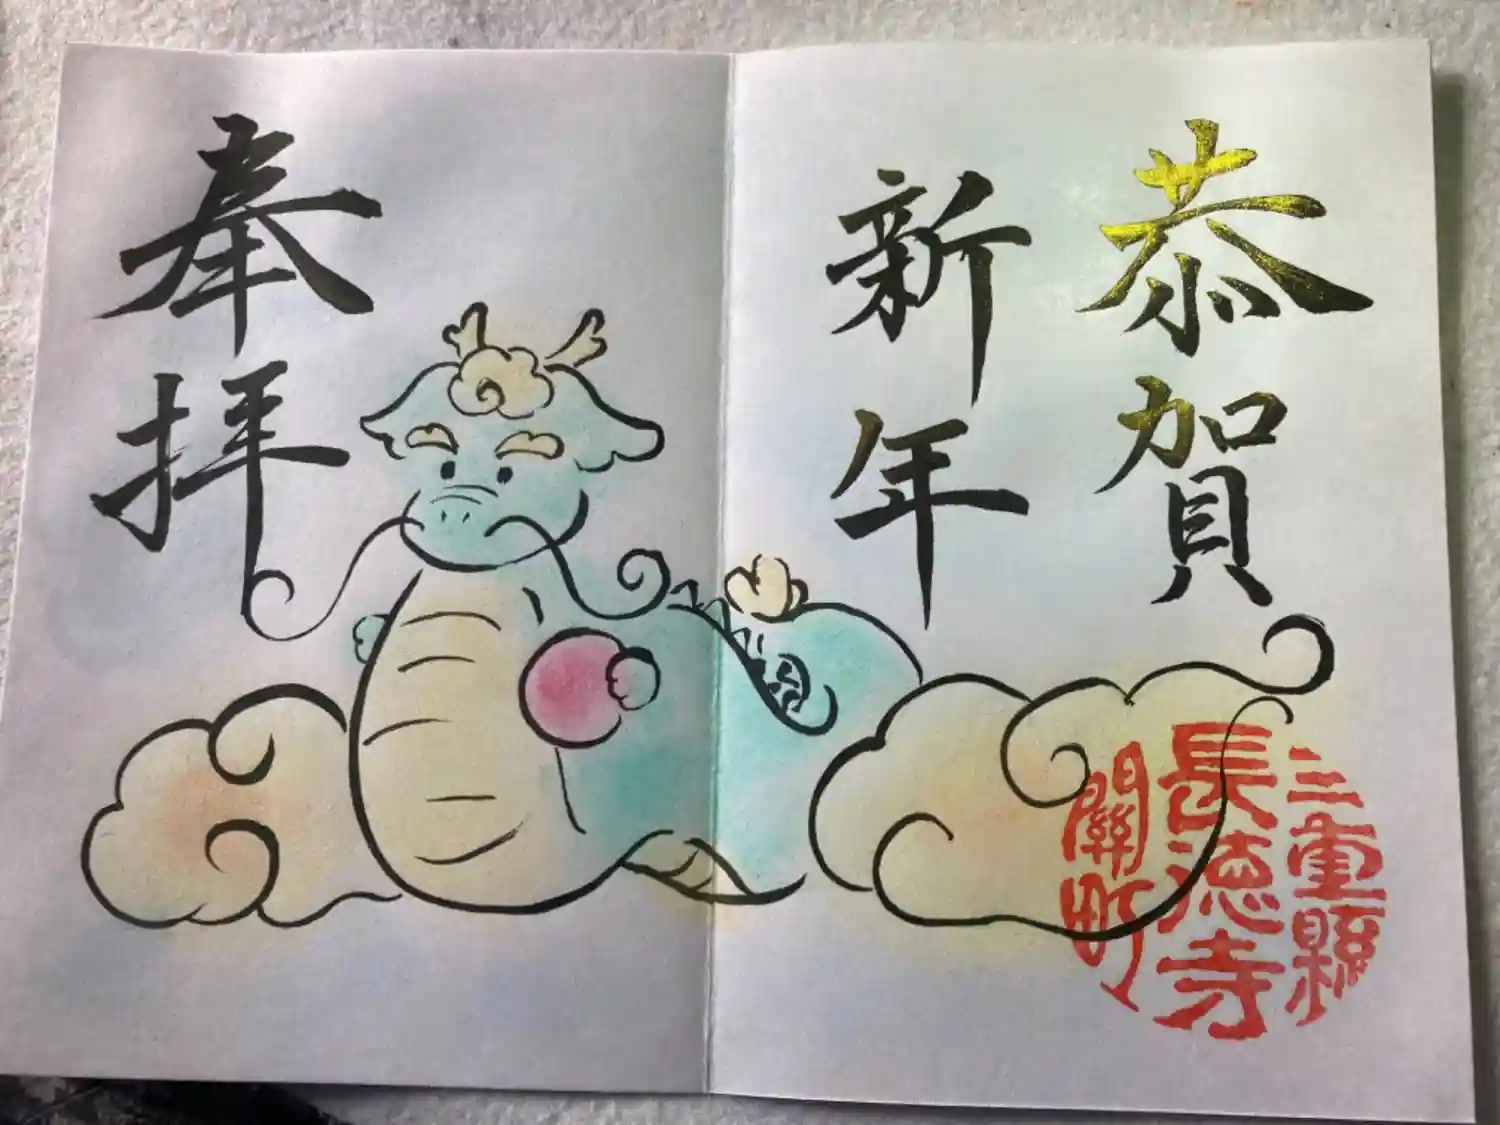 恭賀
新年
奉拝
三重縣
長徳寺
關町